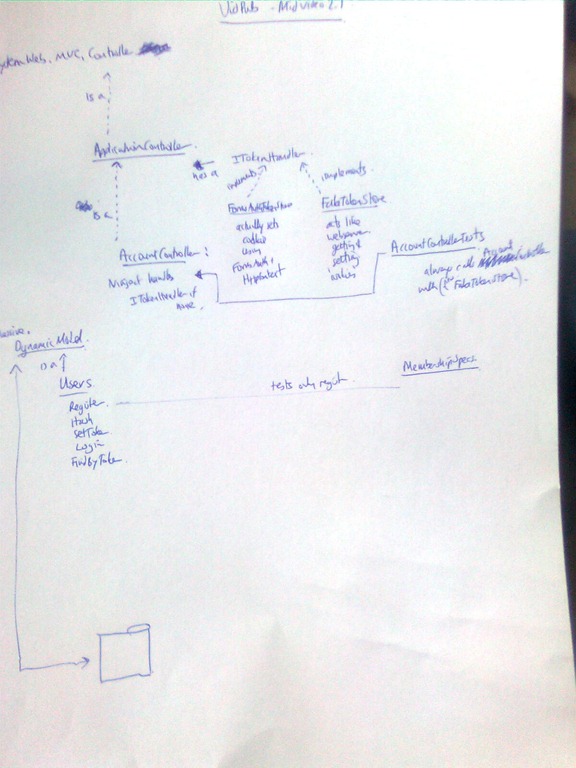 VidPub - Midvideo 2.1
ystem.Web. MVC. Controller
is a
ApplicationController
has a
ITokenHandler
implements
implements
is a
FormsAuthTokenStore
actually sets
cookie
using
FormsAuth &
HttpContext
FakeTokenStore
acts like
webserver
getting &
setting
AccountController :
Ninject handles
ITokenHandler if
none.
AccountControllerTests
always calls Account Controller
with ( FakeTokenStore).
assive.
DynamicModel.
is a
Users
Register
Hash
SetToken
Login
FindByToken
tests only regist.
MembershipSpecs